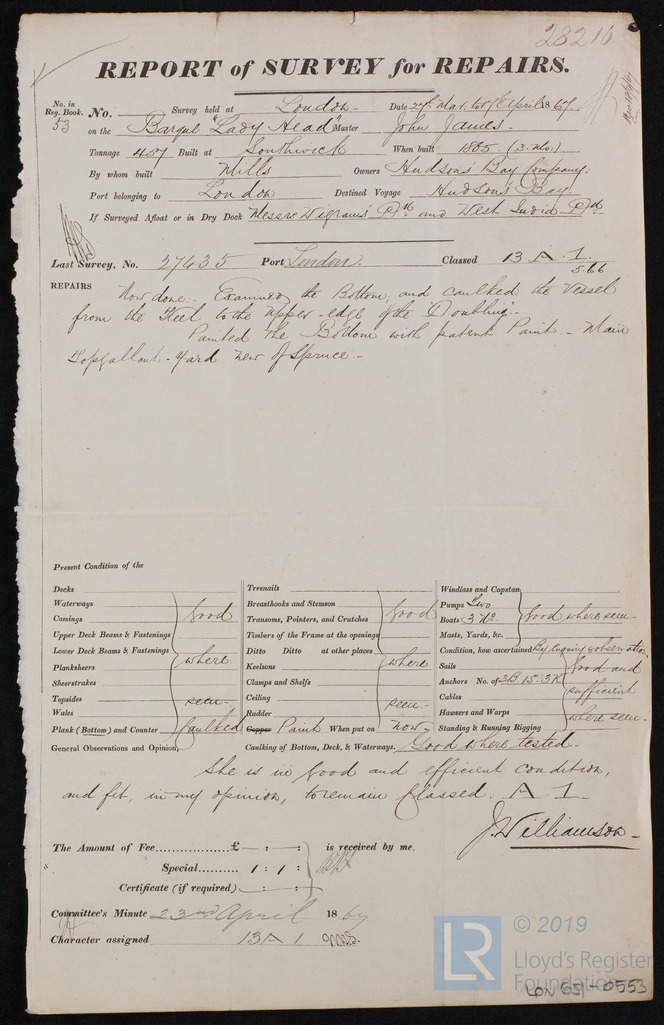 28216
REPORT of SURVEY for REPAIRS.
No. in Reg. Book. No. Survey held at London Date 27th Mar. to 17th April 1867
53 on the Barque "Lady Head" Master John James
Tonnage 457 Built at Southwick When built 1865 (3. Mo.)
By whom built Mills Owners Hudsons Bay Company.
Port belonging to London Destined Voyage Hudson's Bay
If Surveyed Afloat or in Dry Dock Messrs Wigrams' and West India
Last Survey, No. 27435 Port London. Classed 13 A. 1.
5.66
REPAIRS Now done. Examined the Bottom, and caulked the Vessel
from the Keel to the upper-edge of the Doubling.
Painted the Bottom with patent Paint. - Main
Topgallant-yard new of Spruce.-
Present Condition of the
Decks
Waterways
Comings Good
Upper Deck Beams & Fastenings
Lower Deck Beams & Fastenings where
Planksheers
Sheerstrakes
Topsides seen.
Wales
Plank (Bottom) and Counter Caulked
General Observations and Opinion,
Treenails
Breasthooks and Stemson
Transoms, Pointers, and Crutches Good
Timbers of the Frame at the openings
Ditto Ditto at other places where
Keelsons
Clamps and Shelfs
Ceiling seen.
Rudder
Copper Paint When put on now-
Caulking of Bottom, Deck, & Waterways. Good where tested.
Windlass and Capstan
Pumps Two
Boats 3 No. Good where seen.
Masts, Yards, &c.
Condition, how ascertained By Inquiry & observation
Sails Good and
Anchors No. of 3B 1S. 3K sufficient
Cables
Hawsers and Warps where seen.
Standing & Running Rigging
She is in good and efficient condition,
and fit, in my opinion, to remain Classed: A 1.
J. Williamson
The Amount of Fee £ : : is received by me,
Special 1 : 1 :
Certificate (if required) : :
Committee's Minute 23rd April 1867
Character assigned 13 A 1
© 2019
LR
Lloyd's Register
Foundation
LON 651-0553